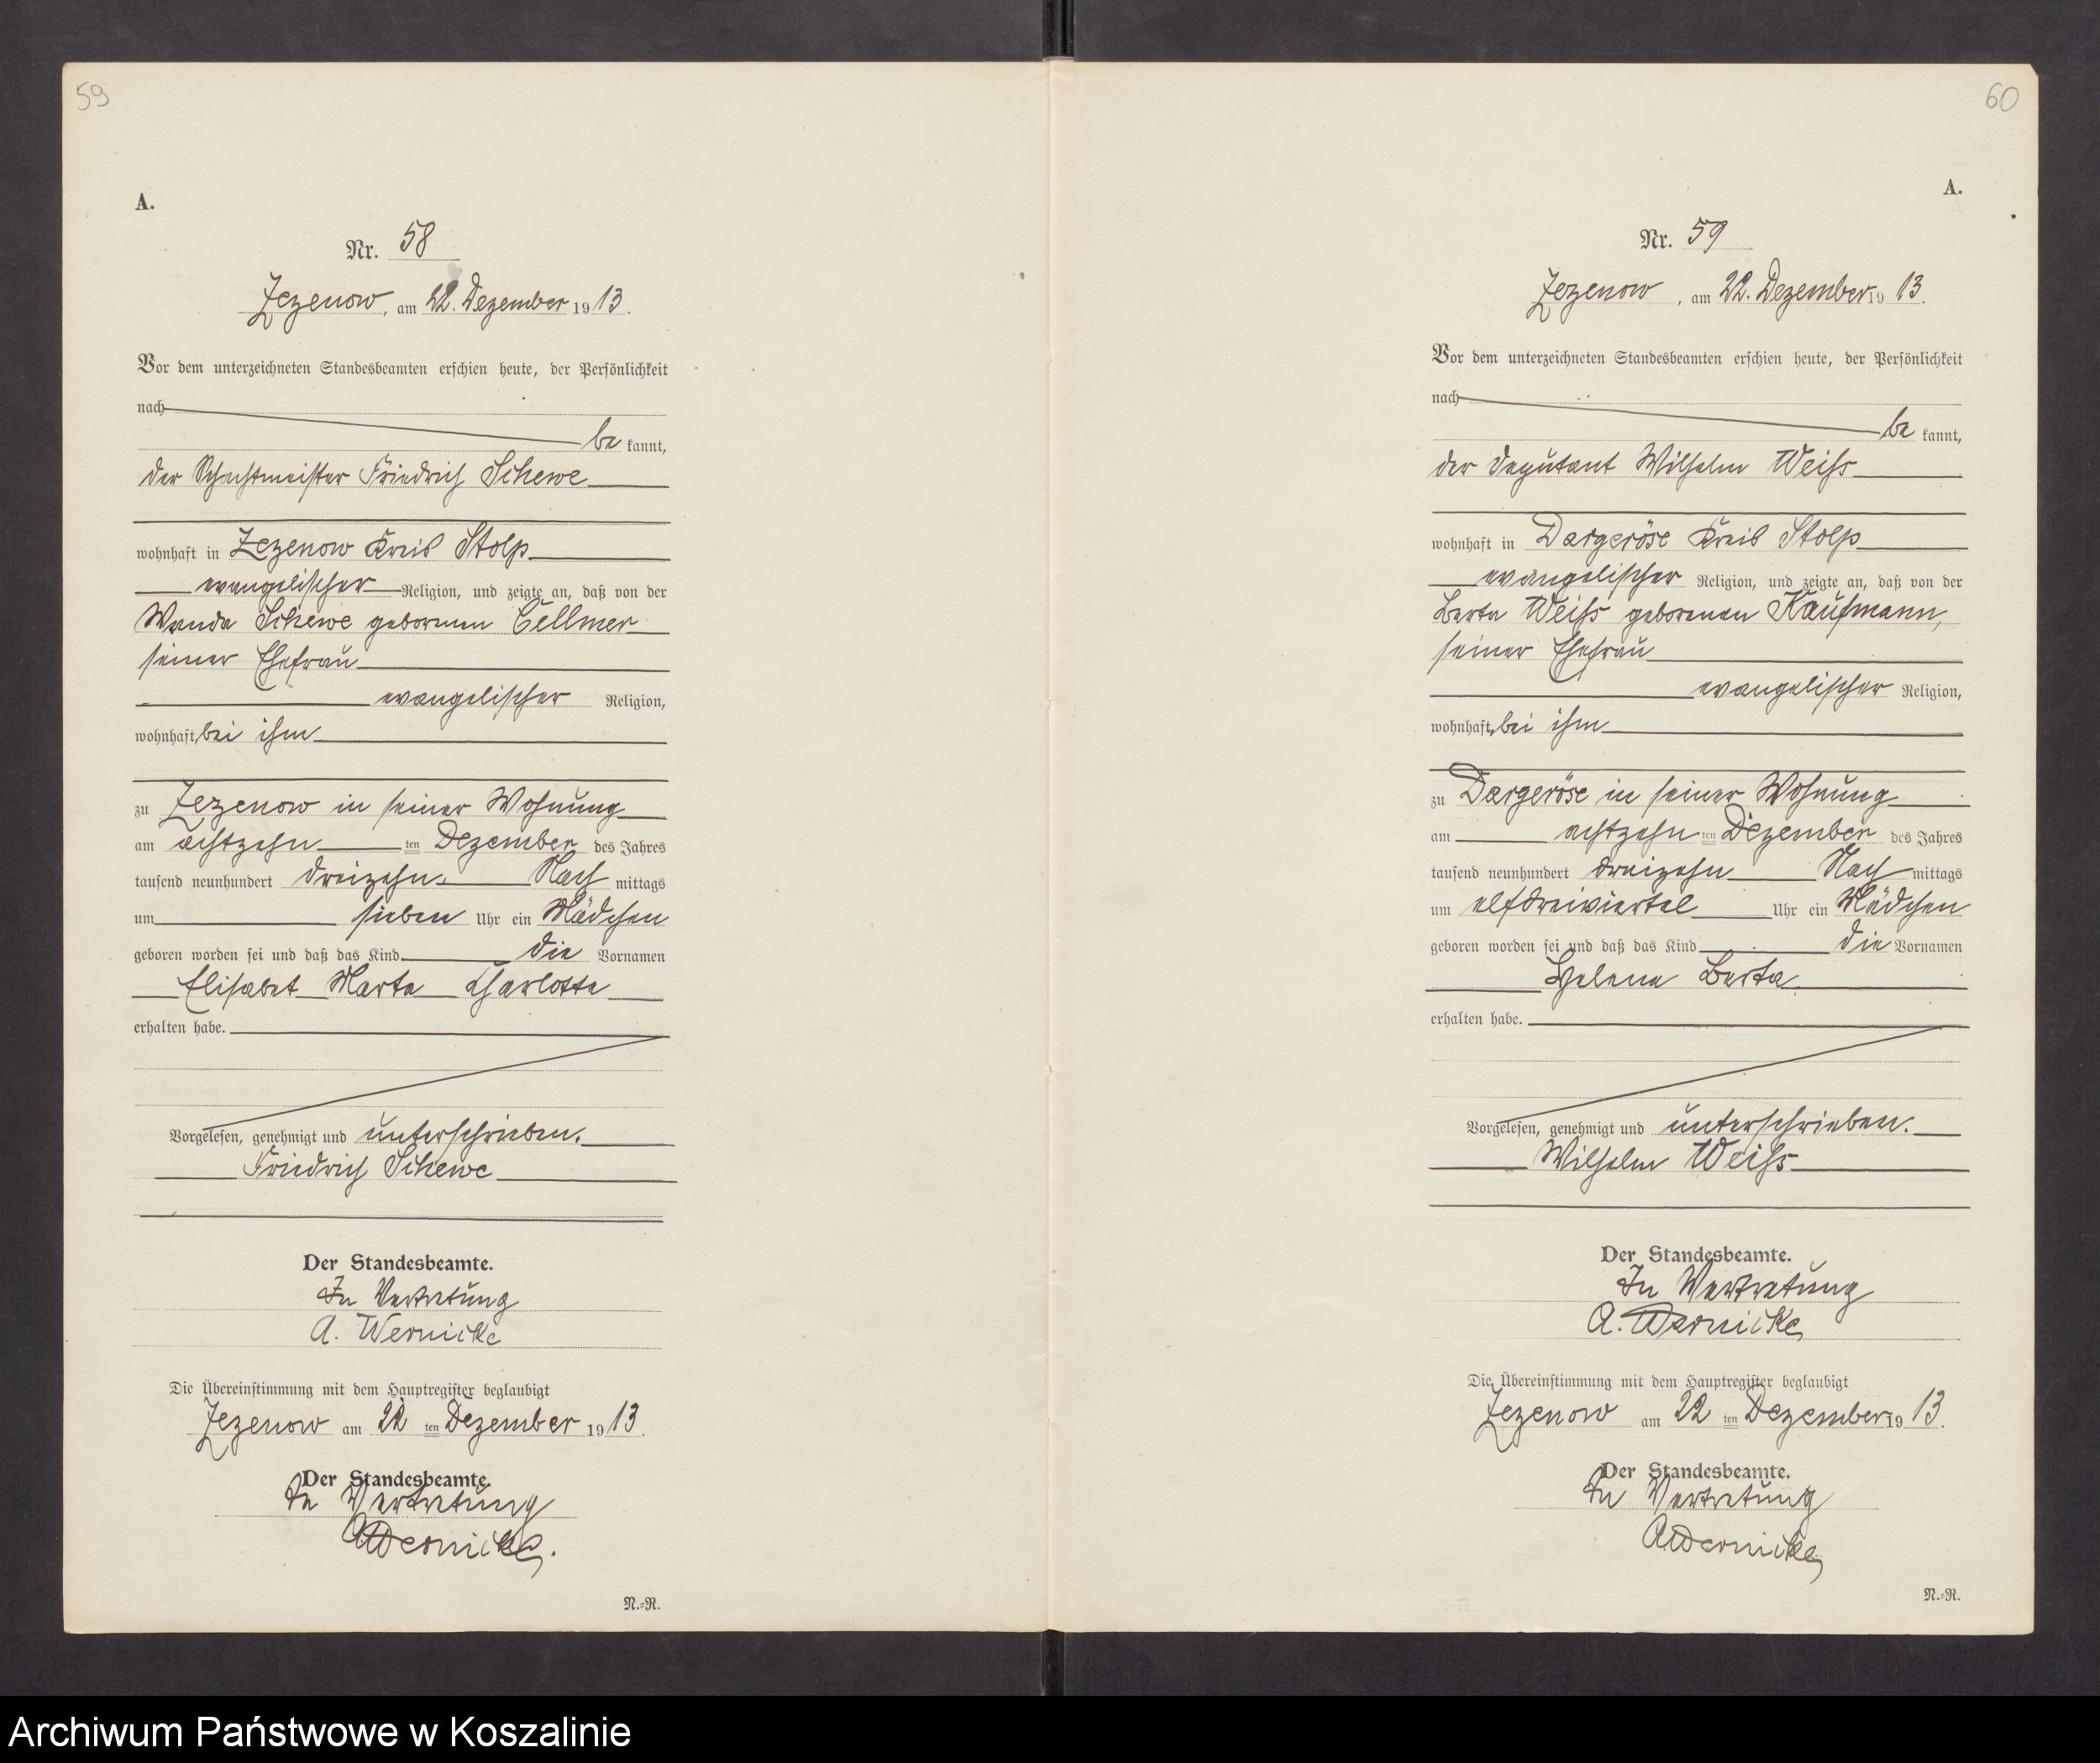 59
A.
Nr. 58
Zezenow, am 22. Dezember 1913.
Vor dem unterzeichneten Standesbeamten erschien heute, der Persönlichkeit
nach
be kannt,
der Schachtmeister Friedrich Schewe
wohnhaft in Zezenow Kreis Stolp
evangelischer Religion, und zeigte an, daß von der
Wanda Schewe geborenen Cellmer
seiner Ehefrau
evangelischer Religion,
wohnhaft, bei ihm
zu Zezenow in seiner Wohnung
am achtzehn ten Dezember des Jahres
tausend neunhundert dreizehn Nach mittags
um sieben Uhr ein Mädchen
geboren worden sei und daß das Kind die Vornamen
Elisabet Marta Charlotte
erhalten habe.
Vorgelesen, genehmigt und unterschrieben.
Friedrich Schewe
Der Standesbeamte.
In Vertretung
A. Wernicke
Die Übereinstimmung mit dem Hauptregister beglaubigt
Zezenow am 22 ten Dezember 1913.
Der Standesbeamte.
In Vertretung
A Wernicke.
N.=R.
60
A.
Nr. 59
Zezenow, am 22. Dezember 1913.
Vor dem unterzeichneten Standesbeamten erschien heute, der Persönlichkeit
nach
be kannt,
der Deputant Wilhelm Weiß
wohnhaft in Dargeröse Kreis Stolp
evangelischer Religion, und zeigte an, daß von der
Berta Weiß geborenen Kaufmann,
seiner Ehefrau
evangelischer Religion,
wohnhaft, bei ihm
zu Dargeröse in seiner Wohnung
am achtzehn ten Dezember des Jahres
tausend neunhundert dreizehn Nach mittags
um elfdreiviertel Uhr ein Mädchen
geboren worden sei und daß das Kind die Vornamen
Helene Berta
erhalten habe.
Vorgelesen, genehmigt und unterschrieben.
Wilhelm Weiß
Der Standesbeamte.
In Vertretung
A. Wernicke
Die Übereinstimmung mit dem Hauptregister beglaubigt
Zezenow am 22 ten Dezember 1913.
Der Standesbeamte.
In Vertretung
A Wernicke
N.=R.
Archiwum Państwowe w Koszalinie